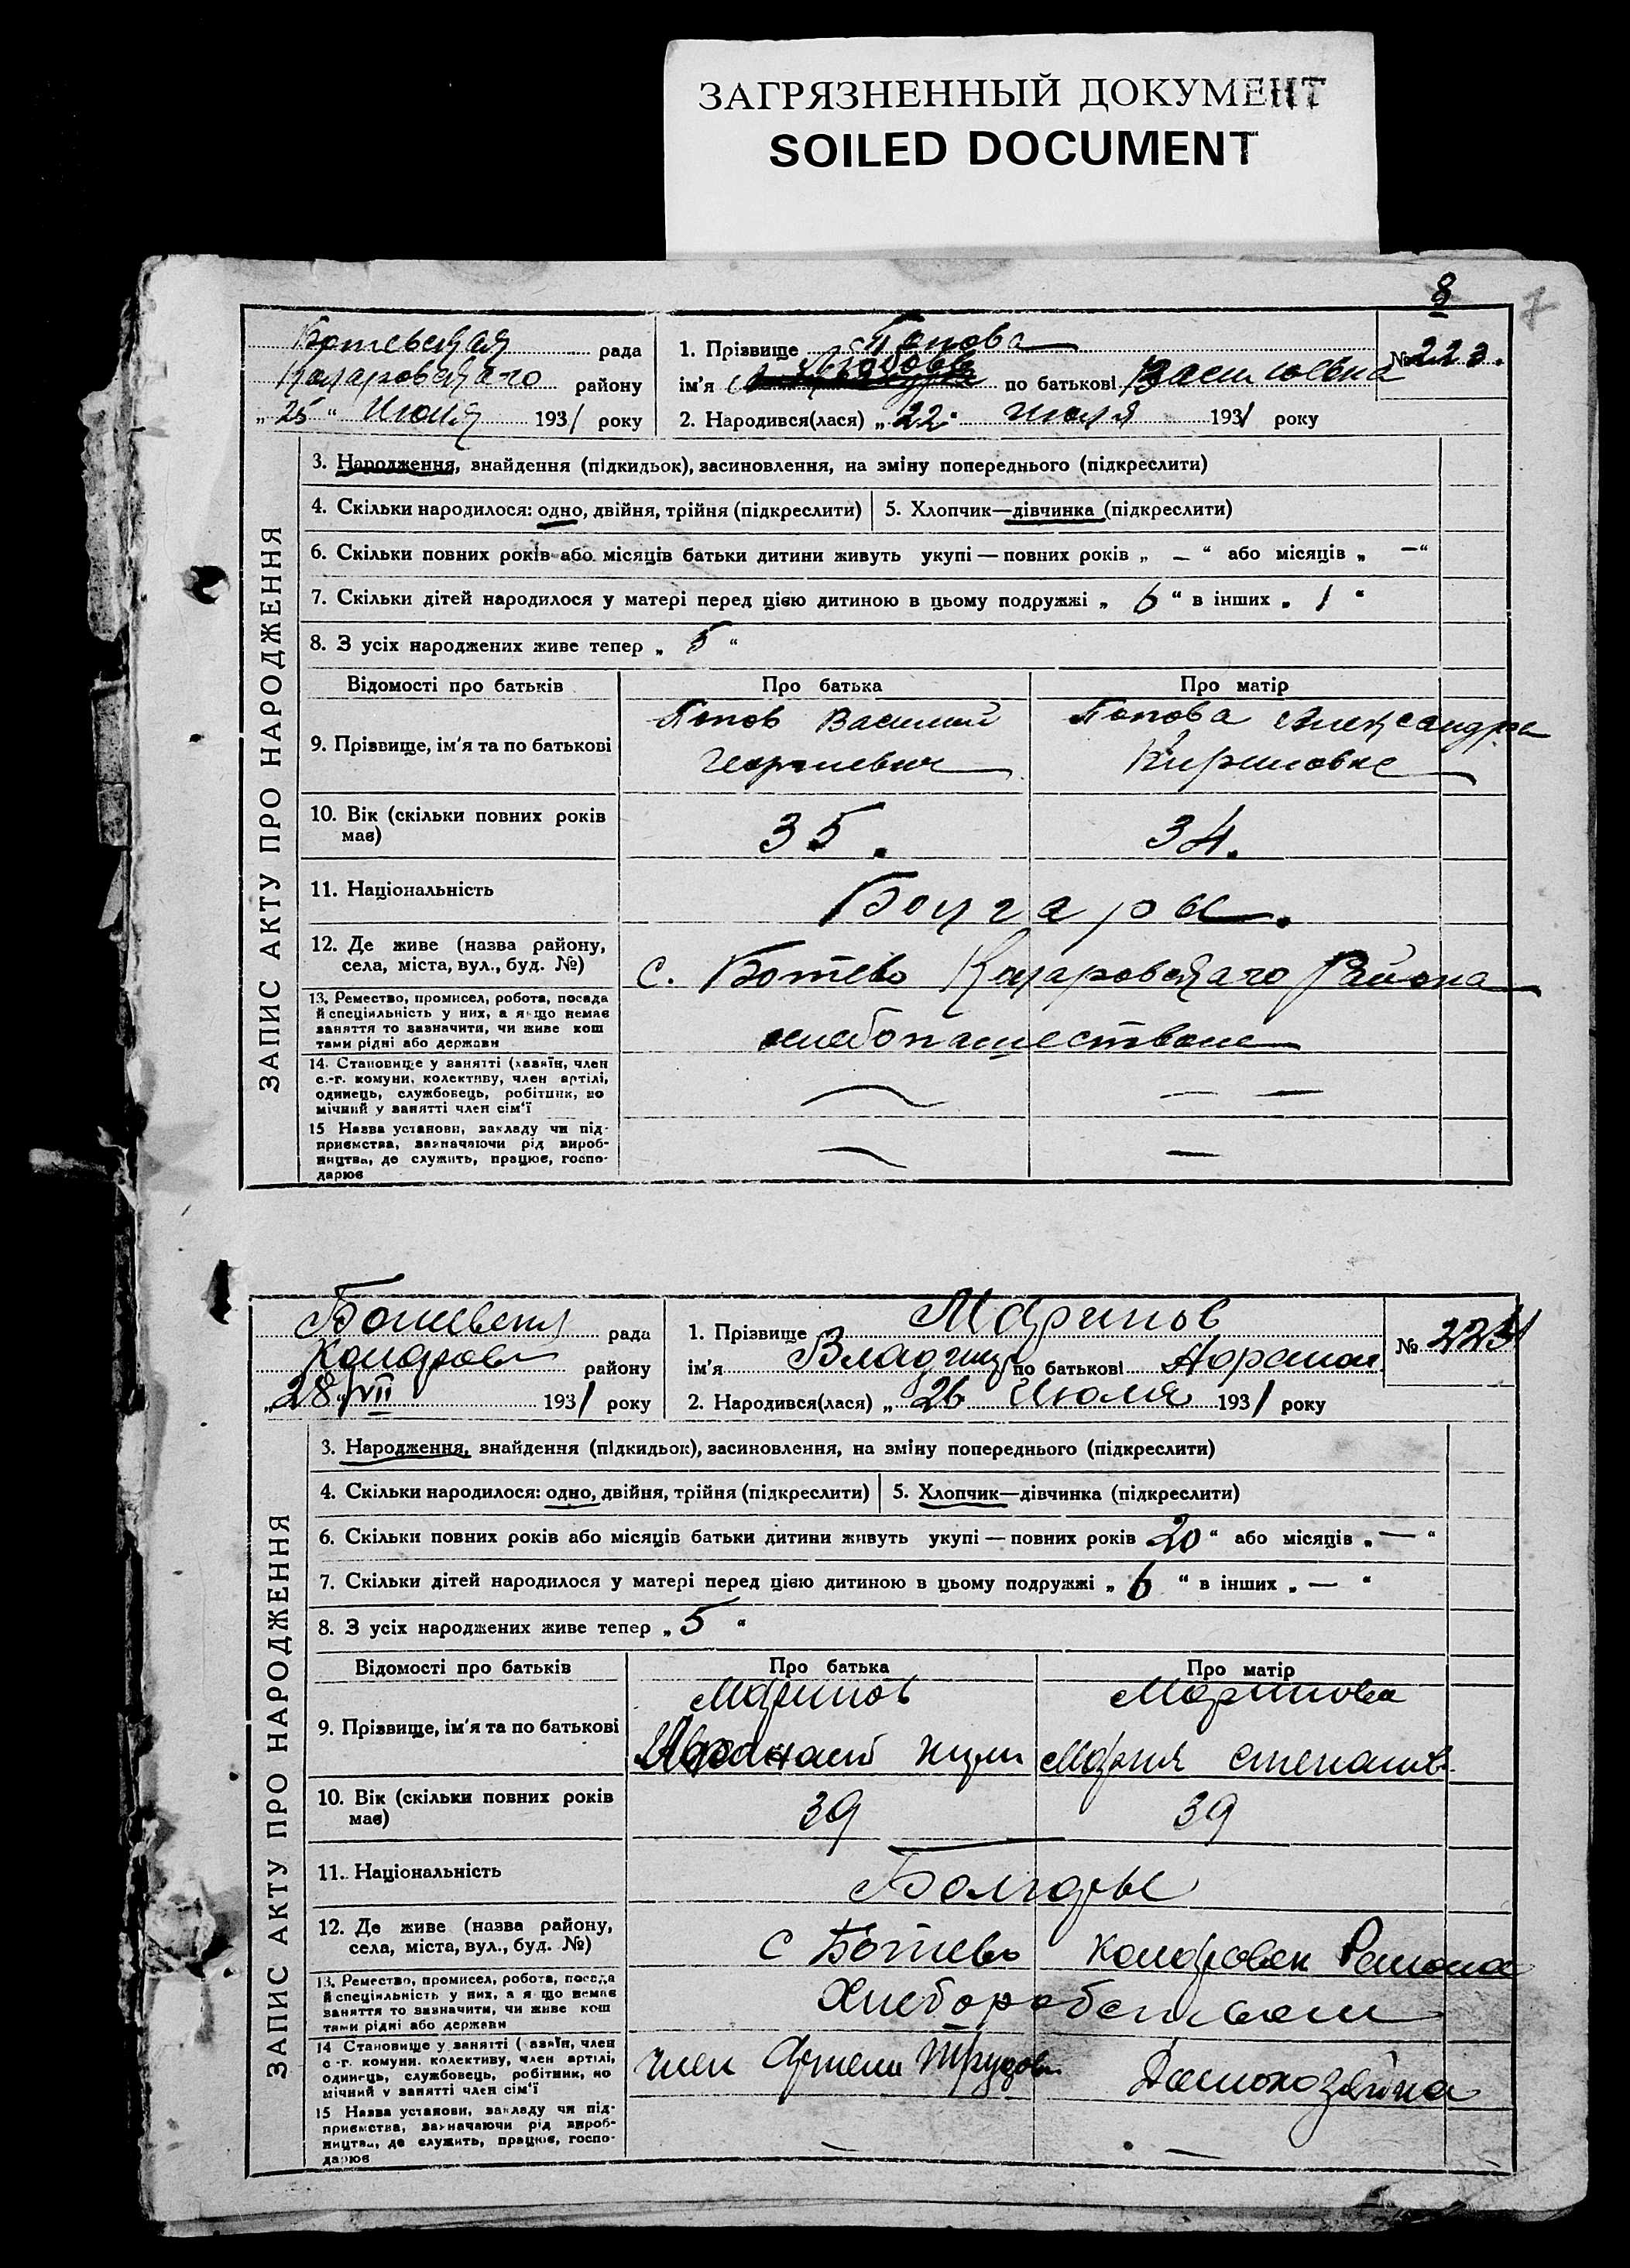 ЗАГРЯЗНЕННЫЙ ДОКУМЕНТ
SOILED DOCUMENT
8
7
Ботевская рада
Коларовскаго району
„25“ Июля 1931 року
1. Прізвище Попова
ім'я Любовь по батькові Васильевна
№ 223.
2. Народився(лася) „22“ Июля 1931 року
ЗАПИС АКТУ ПРО НАРОДЖЕННЯ
3. Народження, знайдення (підкидьок), засиновлення, на зміну попереднього (підкреслити)
4. Скільки народилося: одно, двійня, трійня (підкреслити) 5. Хлопчик—дівчинка (підкреслити)
6. Скільки повних років або місяців батьки дитини живуть укупі — повних років „ — “ або місяців „ — “
7. Скільки дітей народилося у матері перед цією дитиною в цьому подружжі „ 6 “ в інших „ 1 “
8. З усіх народжених живе тепер „ 5 “
Відомості про батьків Про батька Про матір
9. Прізвище, ім'я та по батькові
Попов Василий Георгиевич
Попова Александра Кириловна
10. Вік (скільки повних років має) 35. 34.
11. Національність Болгары.
12. Де живе (назва району, села, міста, вул., буд. №)
с. Ботево Коларовскаго Района
13. Ремество, промисел, робота, посада
й спеціяльність у них, а якщо немає
заняття то зазначити, чи живе кош
тами рідні або держави
хлебопашество
14. Становище у занятті (хазяїн, член
с.-г. комуни, колективу, член артілі,
одинець, службовець, робітник, по
мічний у занятті член сім'ї
— —
15 Назва установи, закладу чи під-
приємства, зазначаючи рід вироб-
ництва, де служить, працює, госпо-
дарює
— —
Ботевская рада
Коларов району
„28“ VII 1931 року
1. Прізвище Маринов
ім'я по батькові
№ 224
2. Народився(лася) „26 Июля 1931 року
ЗАПИС АКТУ ПРО НАРОДЖЕННЯ
3. Народження, знайдення (підкидьок), засиновлення, на зміну попереднього (підкреслити)
4. Скільки народилося: одно, двійня, трійня (підкреслити) 5. Хлопчик—дівчинка (підкреслити)
6. Скільки повних років або місяців батьки дитини живуть укупі — повних років 20 “ або місяців „ — “
7. Скільки дітей народилося у матері перед цією дитиною в цьому подружжі „ 6 “ в інших „ — “
8. З усіх народжених живе тепер „ 5 “
Відомості про батьків Про батька Про матір
9. Прізвище, ім'я та по батькові
Маринов
Маринова
Мария Степанов
10. Вік (скільки повних років має) 39 39
11. Національність Болгары
12. Де живе (назва району, села, міста, вул., буд. №)
с Ботево Коларовск Района
13. Ремество, промисел, робота, посада
й спеціяльність у них, а якщо немає
заняття то зазначити, чи живе кош
тами рідні або держави
14 Становище у занятті (хазяїн, член
с.-г. комуни, колективу, член артілі,
одинець, службовець, робітник, по
мічний у занятті член сім'ї
член Артели Домохозяйка
15 Назва установи, закладу чи під-
приємства, зазначаючи рід вироб-
ництва, де служить, працює, госпо-
дарює
— —